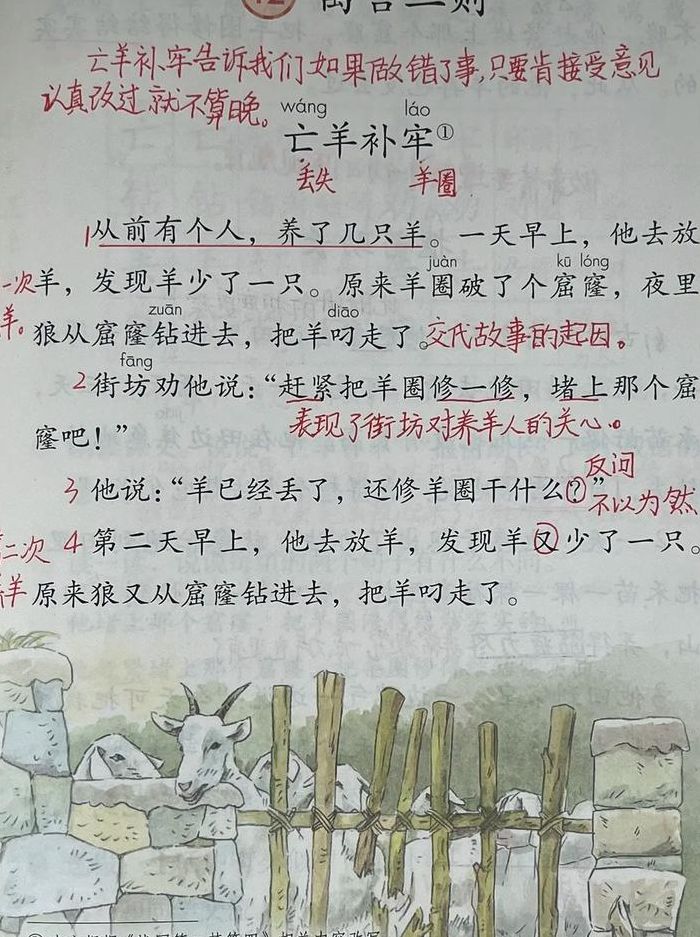 12 寓言二则
亡羊补牢告诉我们如果做错了事,只要肯接受意见
认真改过就不算晚。
wáng láo
亡羊补牢①
丢失 羊圈
1从前有个人，养了几只羊。一天早上，他去放
一次羊，发现羊少了一只。原来羊圈破了个窟窿，夜里
juàn kū lóng
羊。狼从窟窿钻进去，把羊叼走了。交代故事的起因。
zuān diāo
fāng
2街坊劝他说：“赶紧把羊圈修一修，堵上那个窟
窿吧！”表现了街坊对养羊人的关心。
反问
3他说：“羊已经丢了，还修羊圈干什么？”不以为然
二次 4第二天早上，他去放羊，发现羊又少了一只。
羊原来狼又从窟窿钻进去，把羊叼走了。